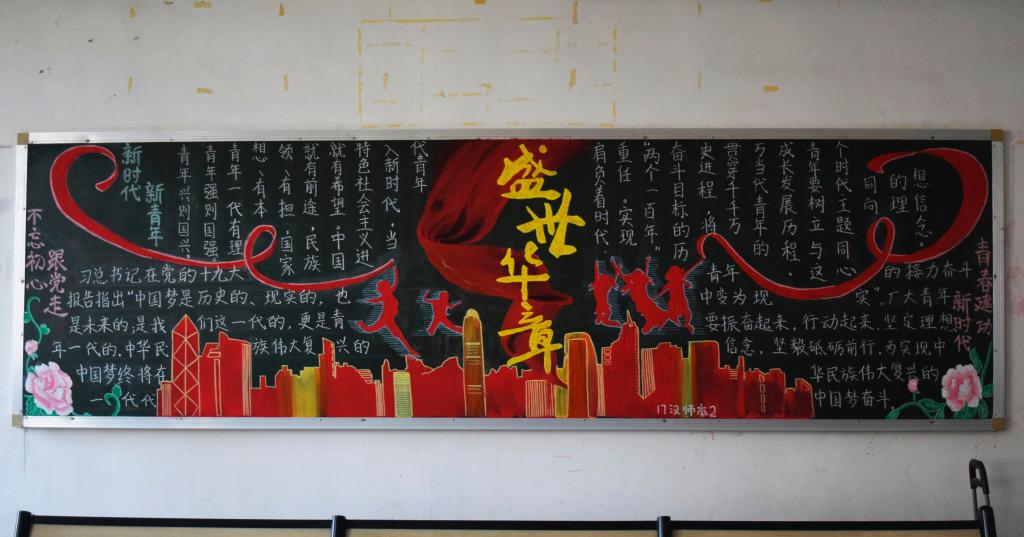 新时代
新青年
不忘初心
跟党走
青年兴则国兴,
青年强则国强,
青年一代有理
想、有本
领、有担,国家
就有前途,民族
就有希望。中国
特色社会主义进
入新时代,当
代青年
盛世华章
肩负着时代
重任,实现
“两个一百年”
奋斗目标的历
史进程,将
贯穿千千万
万当代青年的
成长发展历程,
青年要树立与这
个时代主题同心
同向
的理
想信念,
习总书记在党的十九大
报告指出“中国梦是历史的、现实的,也
是未来的;是我们这一代的,更是青
年一代的。中华民族伟大复兴的
中国梦终将在
一代代
青年的接力奋斗
中变为现实”。广大青年
要振奋起来,行动起来,坚定理想
信念,坚毅砥砺前行,为实现中
华民族伟大复兴的
中国梦奋斗
青春建功
新时代
17汉师本2